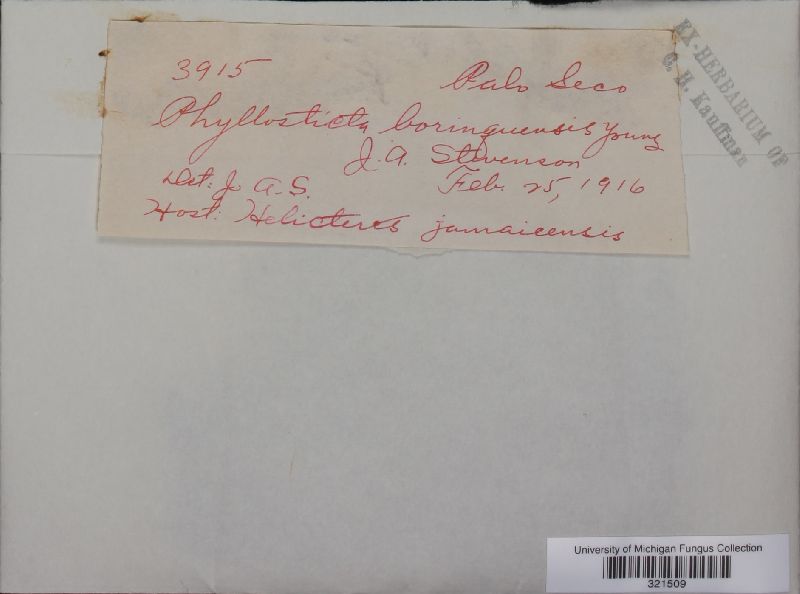 3915 Palo Seco
Phyllosticta borinquensis Young
J. A. Stevenson
Det: J. A. S. Feb. 25, 1916
Host: Helicteres jamaicensis
EX-HERBARIUM OF
C. H. Kauffman
University of Michigan Fungus Collection
321509